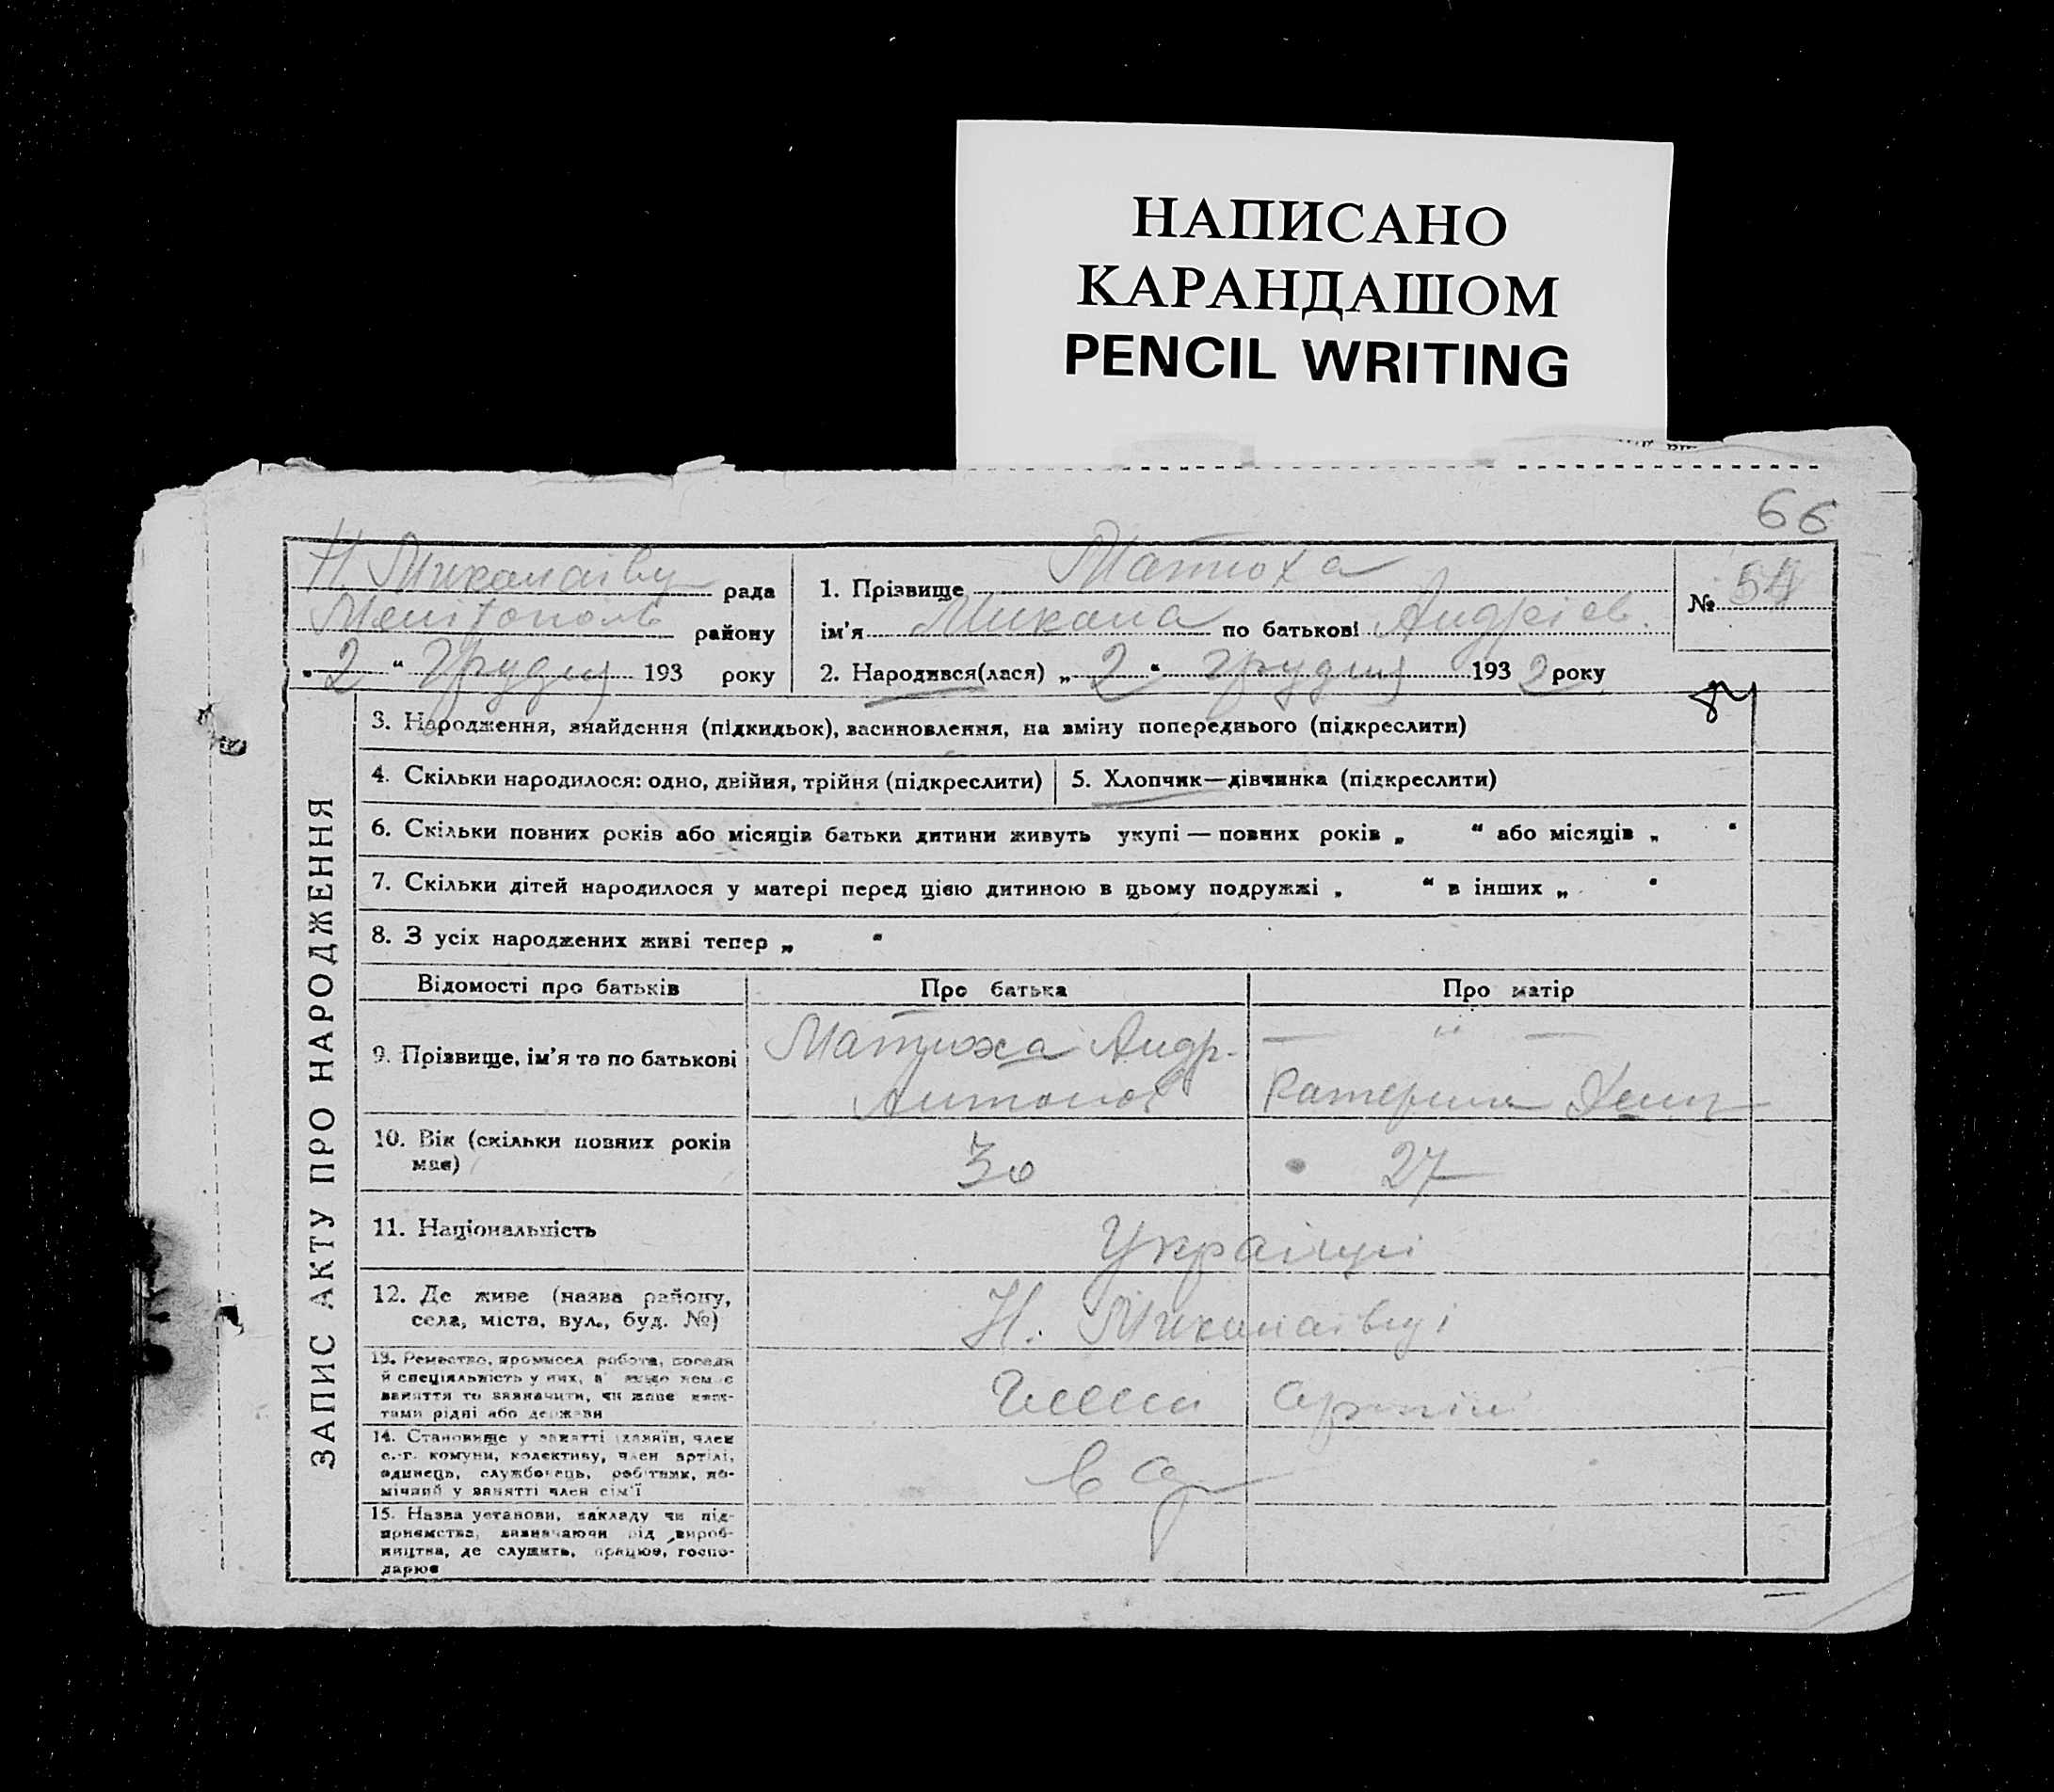 НАПИСАНО
КАРАНДАШОМ
PENCIL WRITING
66
Н. Миколаївц рада
Мелітополь району
" 2 " Грудня 193 року
1. Прізвище Матюха
ім'я Микола по батькові Андрієв.
2. Народився(лася) „ 2 " грудня 193 2 року
№ 54
ЗАПИС АКТУ ПРО НАРОДЖЕННЯ
3. Народження, знайдення (підкидьок), васиновлення, на зміну попереднього (підкреслити)
4. Скільки народилося: одно, двійня, трійня (підкреслити)
5. Хлопчик—дівчинка (підкреслити)
6. Скільки повних років або місяців батьки дитини живуть укупі — повних років „ " або місяців „ "
7. Скільки дітей народилося у матері перед цією дитиною в цьому подружжі „ " в інших „ "
8. З усіх народжених живі тепер „ "
Відомості про батьків
Про батька
Про матір
9. Прізвище, ім'я та по батькові
Матюха Андр.
Антонов
— " —
Катерина
10. Вік (скільки повних років
має)
30
27
11. Національність
Українці
12. Де живе (назва району,
села, міста, вул., буд. №)
Н. Миколаївці
13. Ремество, промисел робота, посада
й спеціальність у них, а якщо немає
заняття то зазначити, чи живе кош-
тами рідні або держави
Члени артілі
14. Становище у занятті (хазяїн, член
с.-г. комуни, колективу, член артілі,
одинець, службовець, робітник, по-
мічний у занятті член сім'ї
15. Назва установи, закладу чи під-
приємства, визначаючи від вироб-
ництва, де служить, працює, госпо-
дарює